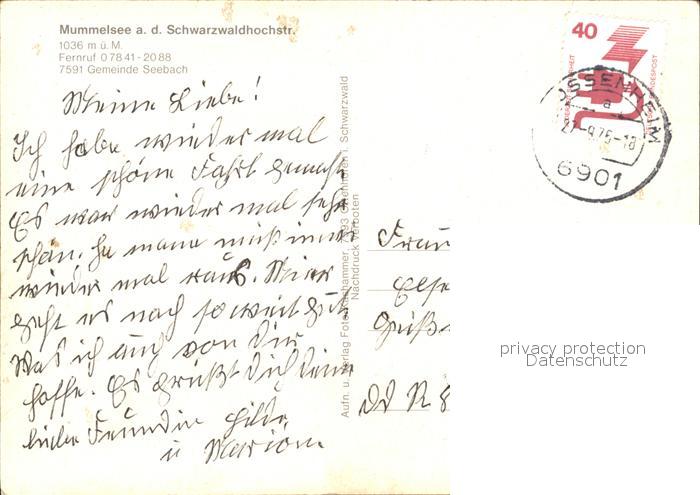 Mummelsee a. d. Schwarzwaldhochstr.
1036 m ü. M.
Fernruf 0 78 41 - 20 88
7591 Gemeinde Seebach
Meine Liebe!
Ich habe wieder mal
eine schöne Fahrt gemacht
Es war wieder mal sehr
schön. Ja mann muß immer
wieder mal raus. Mir
geht es noch soweit gut
Was ich auch von Dir
hoffe. Es grüßt Dich Deine
liebe Freundin Hilde
u Marion.
Aufn. u. Verlag Foto Nachdruck verboten
Schwarzwald
40
OSSENHEIM
a
27-9.75-18
6901
Frau
Else
DDR 8
privacy protection
Datenschutz